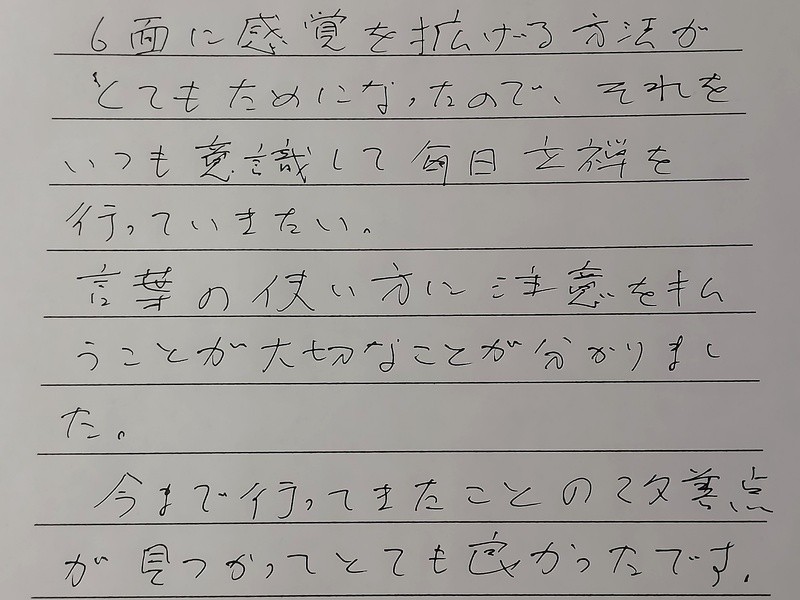 6面に感覚を拡げる方法が
とてもためになったので、それを
いつも意識して毎日立禅を
行っていきたい。
言葉の使い方に注意を払
うことが大切なことが分かりまし
た。
今まで行ってきたことの改善点
が見つかってとても良かったです。